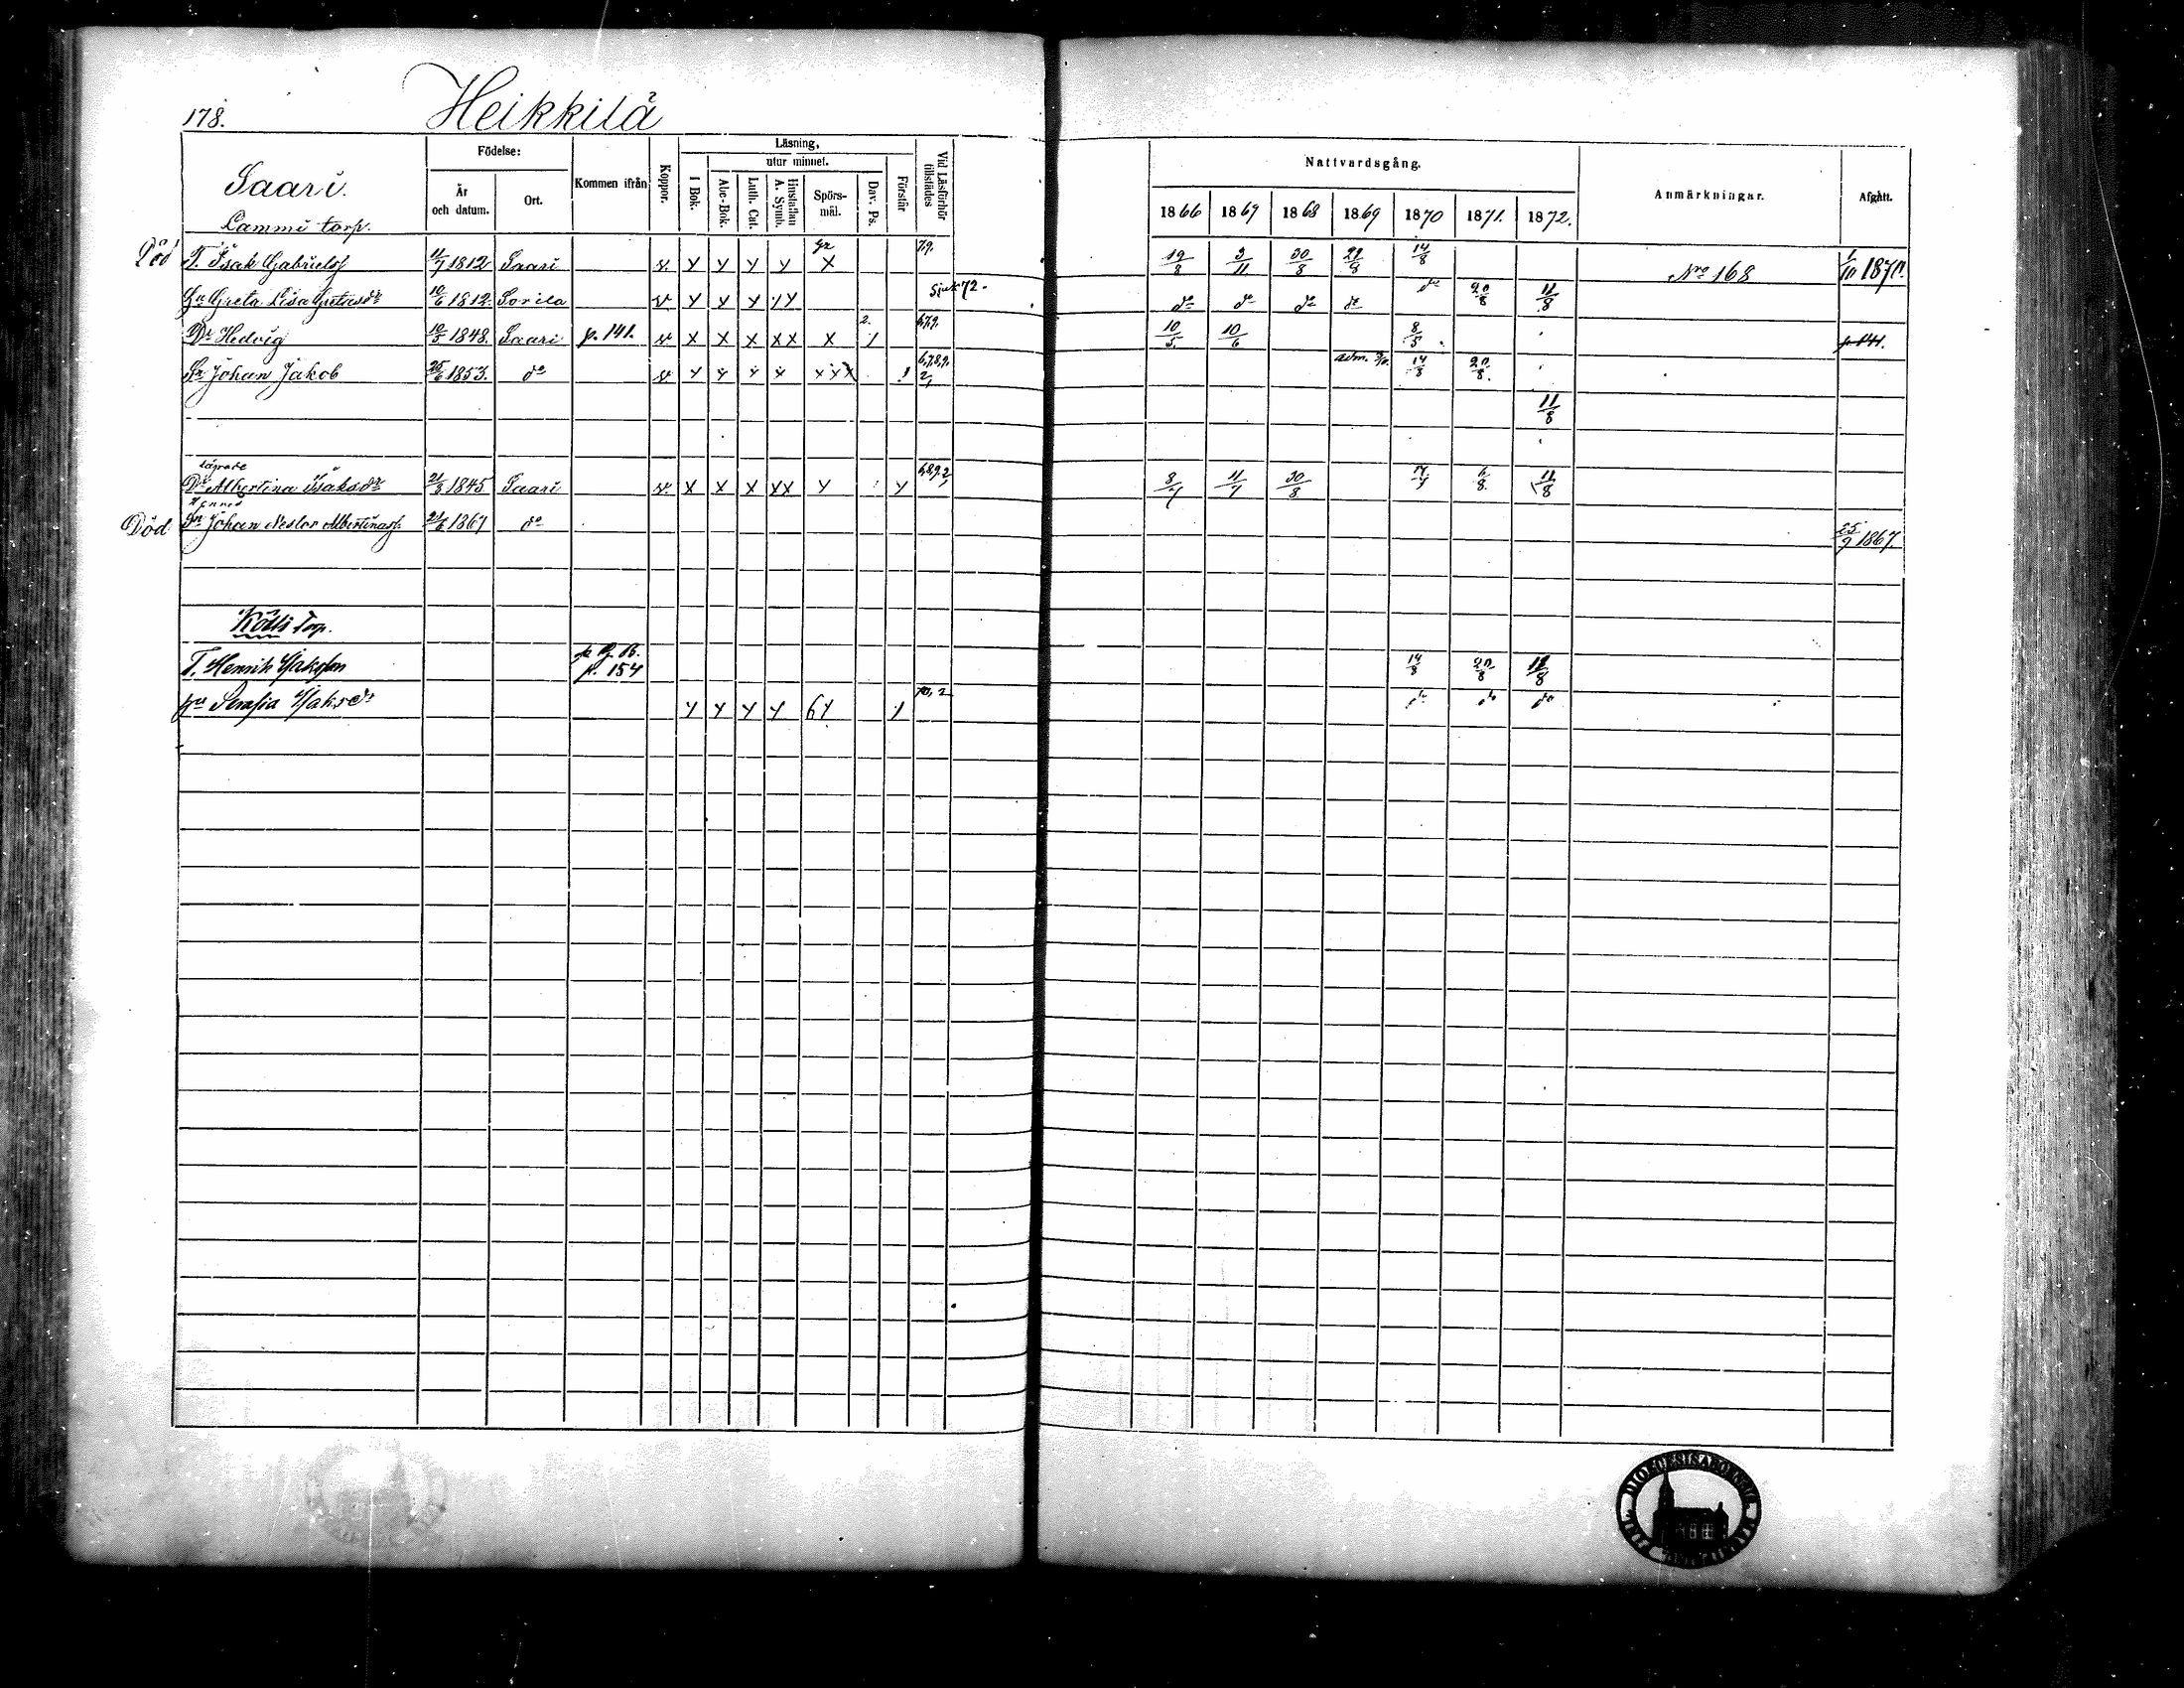 178. Heikkilä
Saari.
Lammi torp.
Födelse:
År och datum.
Ort.
Kommen ifrån
Koppor.
Läsning,
I Bok.
utur minnet.
Abc-Bok.
Luth. Cat.
Hustaflan A. Symb.
Spörs-mål.
Dav. Ps.
Förstår
Vid Läsförhör tillstädes
Nattvardsgång.
1866 1867 1868 1869 1870 1871. 1872.
Anmärkningar.
Afgått.
Död T. Isak Gabrielsf 11/7 1812 Saari v. y y y y x 7,9. 19/8 3/11 30/8 29/8 14/8 Nro 168 1/10 1870.
Hu Greta Lisa Gustafsdr 10/6 1812 Sorila v y y y yy Sjuk 72. do do do do do 20/8 11/8
Dr Hedvig 10/5 1848. Saari p. 141. v x x x xx x 2. 6,7,9. 10/5. 10/6 8/5 p. 141.
Sn Johan Jakob 1853. do v y y x x xyx 6,7,8,9. 14/8 20/8.
11/8
Dr Albertina Isaksdr 21/3 1845 Saari v. x x x xx y y 6,8,9,2 8/7 11/7 30/8 6/8. 11/8
Död Sn Johan Nestor Albertinasf. 21/6 1867 do 25/9 1867.
Torp.
T. Henrik p. 154 14/8 20/8 11/8
Hu Serafia y y y y 6y y 70, 2 do do do